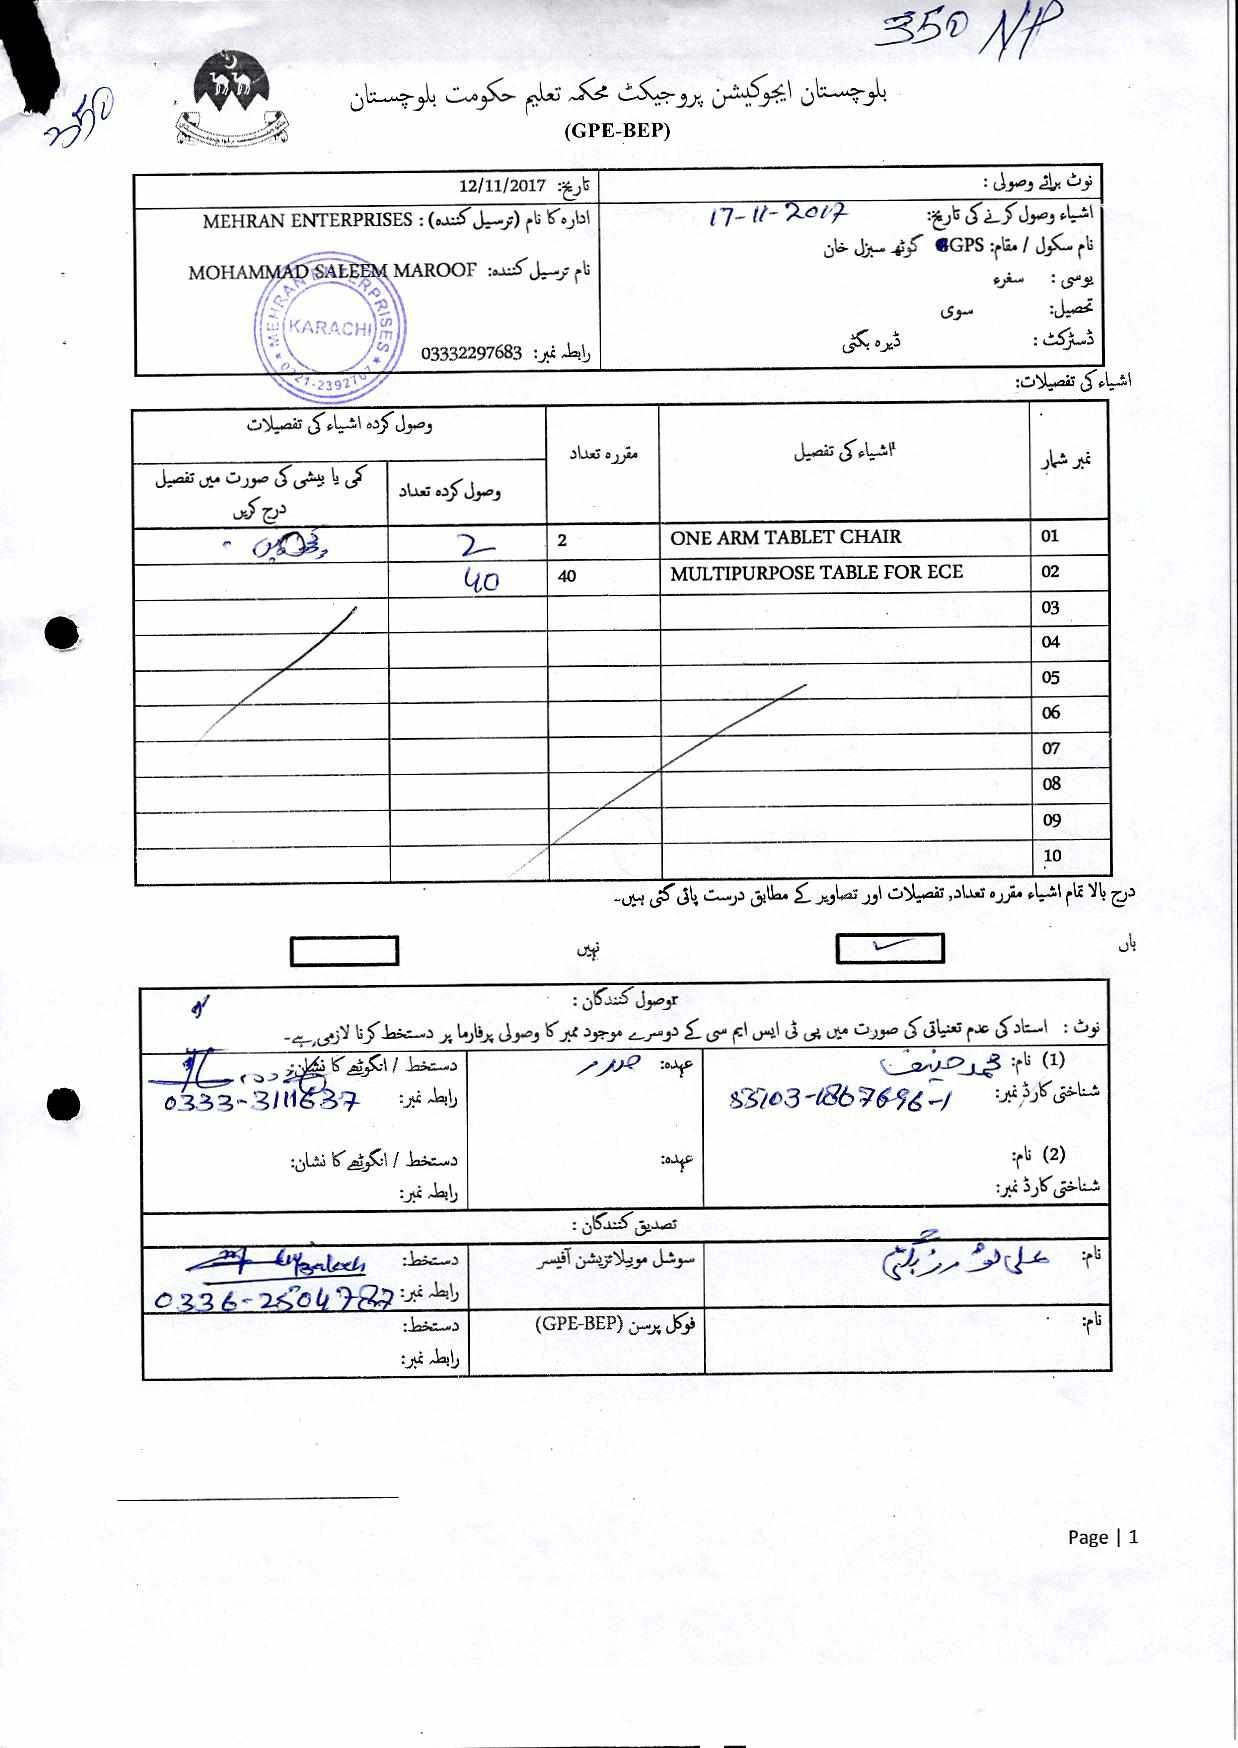 350 NP
350
بلوچستان ایجوکیشن پروجیکٹ محکمہ تعلیم حکومت بلوچستان
(GPE-BEP)
نوٹ برائے وصولی :
اشیاء وصول کرنے کی تاریخ: 17-11-2017
نام سکول / مقام: GPS گوٹھ سبزل خان
یوسی : سغرء
تحصیل: سوی
ڈسٹرکٹ : ڈیرہ بگٹی
تاریخ: 12/11/2017
ادارہ کا نام (ترسیل کنندہ) : MEHRAN ENTERPRISES
نام ترسیل کنندہ: MOHAMMAD SALEEM MAROOF
رابطہ نمبر: 03332297683
MEHRAN ENTERPRISES
KARACHI
اشیاء کی تفصیلات:
نمبر شمار
اشیاء کی تفصیل
مقررہ تعداد
وصول کردہ اشیاء کی تفصیلات
وصول کردہ تعداد
کمی یا بیشی کی صورت میں تفصیل درج کریں
01 ONE ARM TABLET CHAIR 2 2
02 MULTIPURPOSE TABLE FOR ECE 40 40
03
04
05
06
07
08
09
10
درج بالا تمام اشیاء مقررہ تعداد, تفصیلات اور تصاویر کے مطابق درست پائی گئی ہیں۔
ہاں
نہیں
وصول کنندگان :
نوٹ : استاد کی عدم تعیناتی کی صورت میں پی ٹی ایس ایم سی کے دوسرے موجود ممبر کا وصولی پرفارما پر دستخط کرنا لازمی ہے۔
(1) نام: محمد حنیف
عہدہ: صدر
دستخط / انگوٹھے کا نشان:
شناختی کارڈ نمبر:
رابطہ نمبر: 0333-3111637
(2) نام:
عہدہ:
دستخط / انگوٹھے کا نشان:
شناختی کارڈ نمبر:
رابطہ نمبر:
تصدیق کنندگان :
نام:
سوشل موبیلائزیشن آفیسر
دستخط:
رابطہ نمبر:
نام:
فوکل پرسن (GPE-BEP)
دستخط:
رابطہ نمبر:
Page | 1